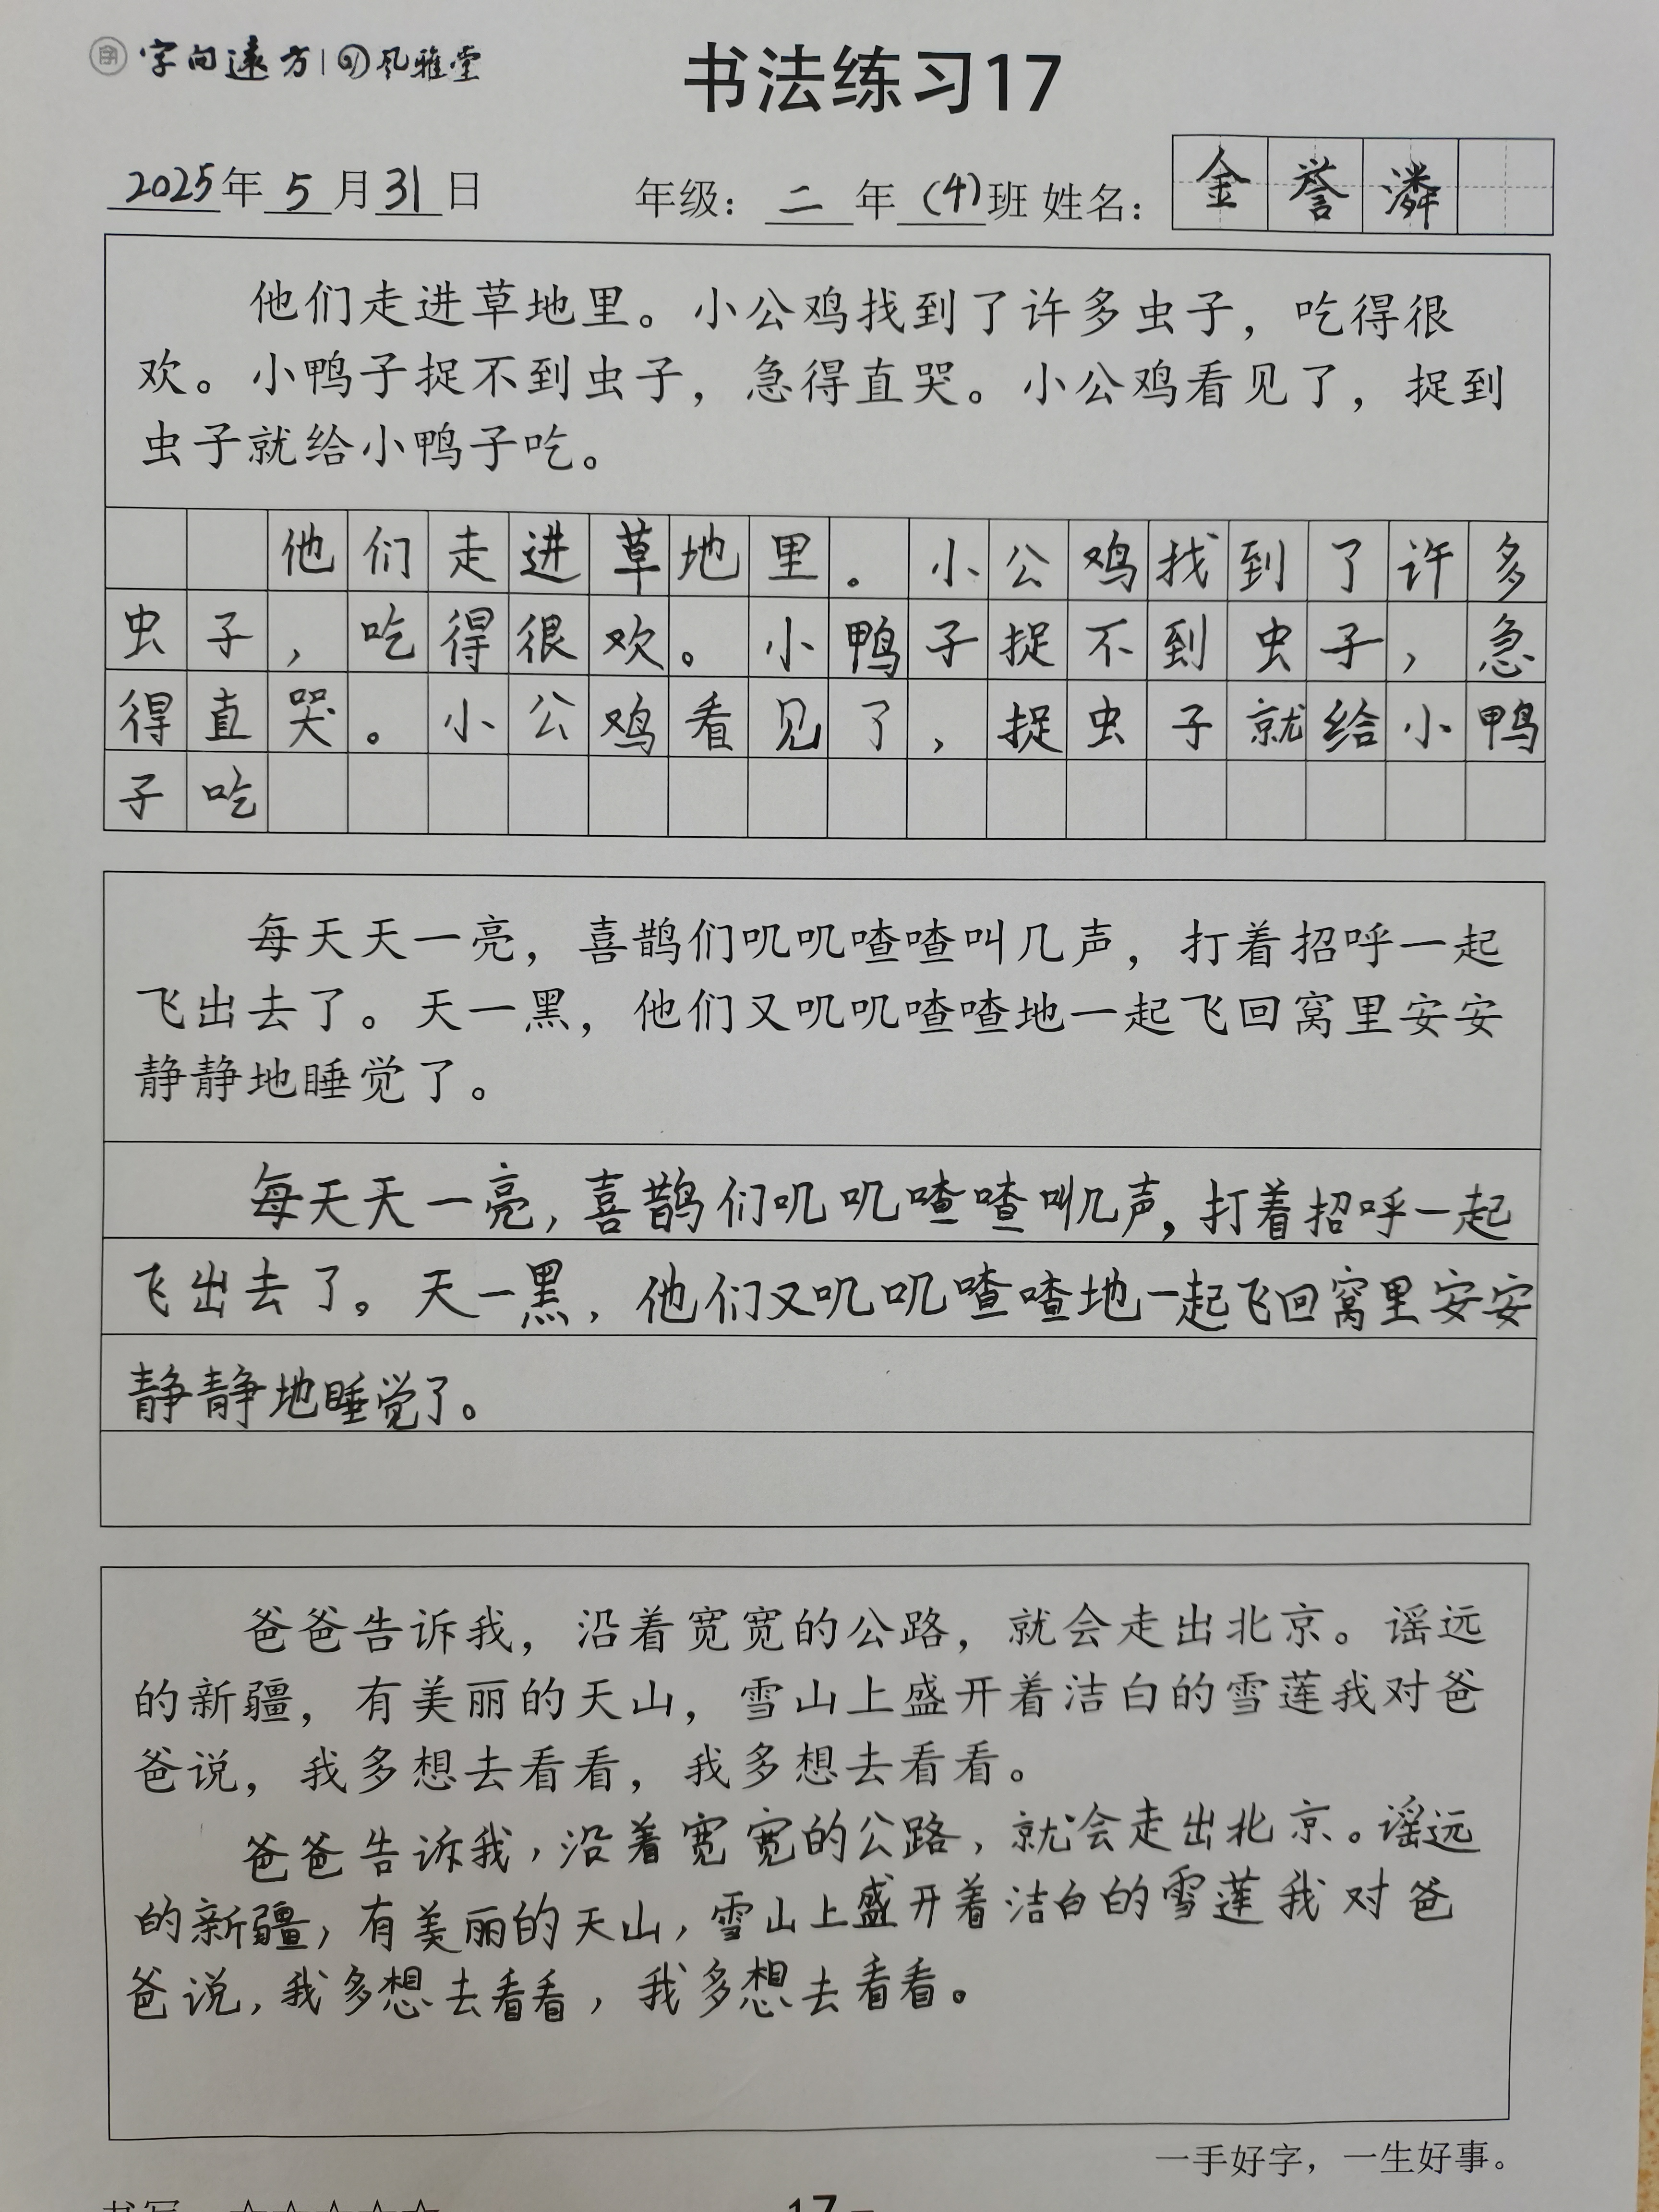 字向远方|风雅堂
书法练习17
2025年5月31日 年级：二年(4)班 姓名：金誉潾
他们走进草地里。小公鸡找到了许多虫子，吃得很
欢。小鸭子捉不到虫子，急得直哭。小公鸡看见了，捉到
虫子就给小鸭子吃。
他们走进草地里。小公鸡找到了许多
虫子，吃得很欢。小鸭子捉不到虫子，急
得直哭。小公鸡看见了，捉虫子就给小鸭
子吃
每天天一亮，喜鹊们叽叽喳喳叫几声，打着招呼一起
飞出去了。天一黑，他们又叽叽喳喳地一起飞回窝里安安
静静地睡觉了。
每天天一亮，喜鹊们叽叽喳喳叫几声，打着招呼一起
飞出去了。天一黑，他们又叽叽喳喳地一起飞回窝里安安
静静地睡觉了。
爸爸告诉我，沿着宽宽的公路，就会走出北京。谣远
的新疆，有美丽的天山，雪山上盛开着洁白的雪莲我对爸
爸说，我多想去看看，我多想去看看。
爸爸告诉我，沿着宽宽的公路，就会走出北京。谣远
的新疆，有美丽的天山，雪山上盛开着洁白的雪莲我对爸
爸说，我多想去看看，我多想去看看。
一手好字，一生好事。